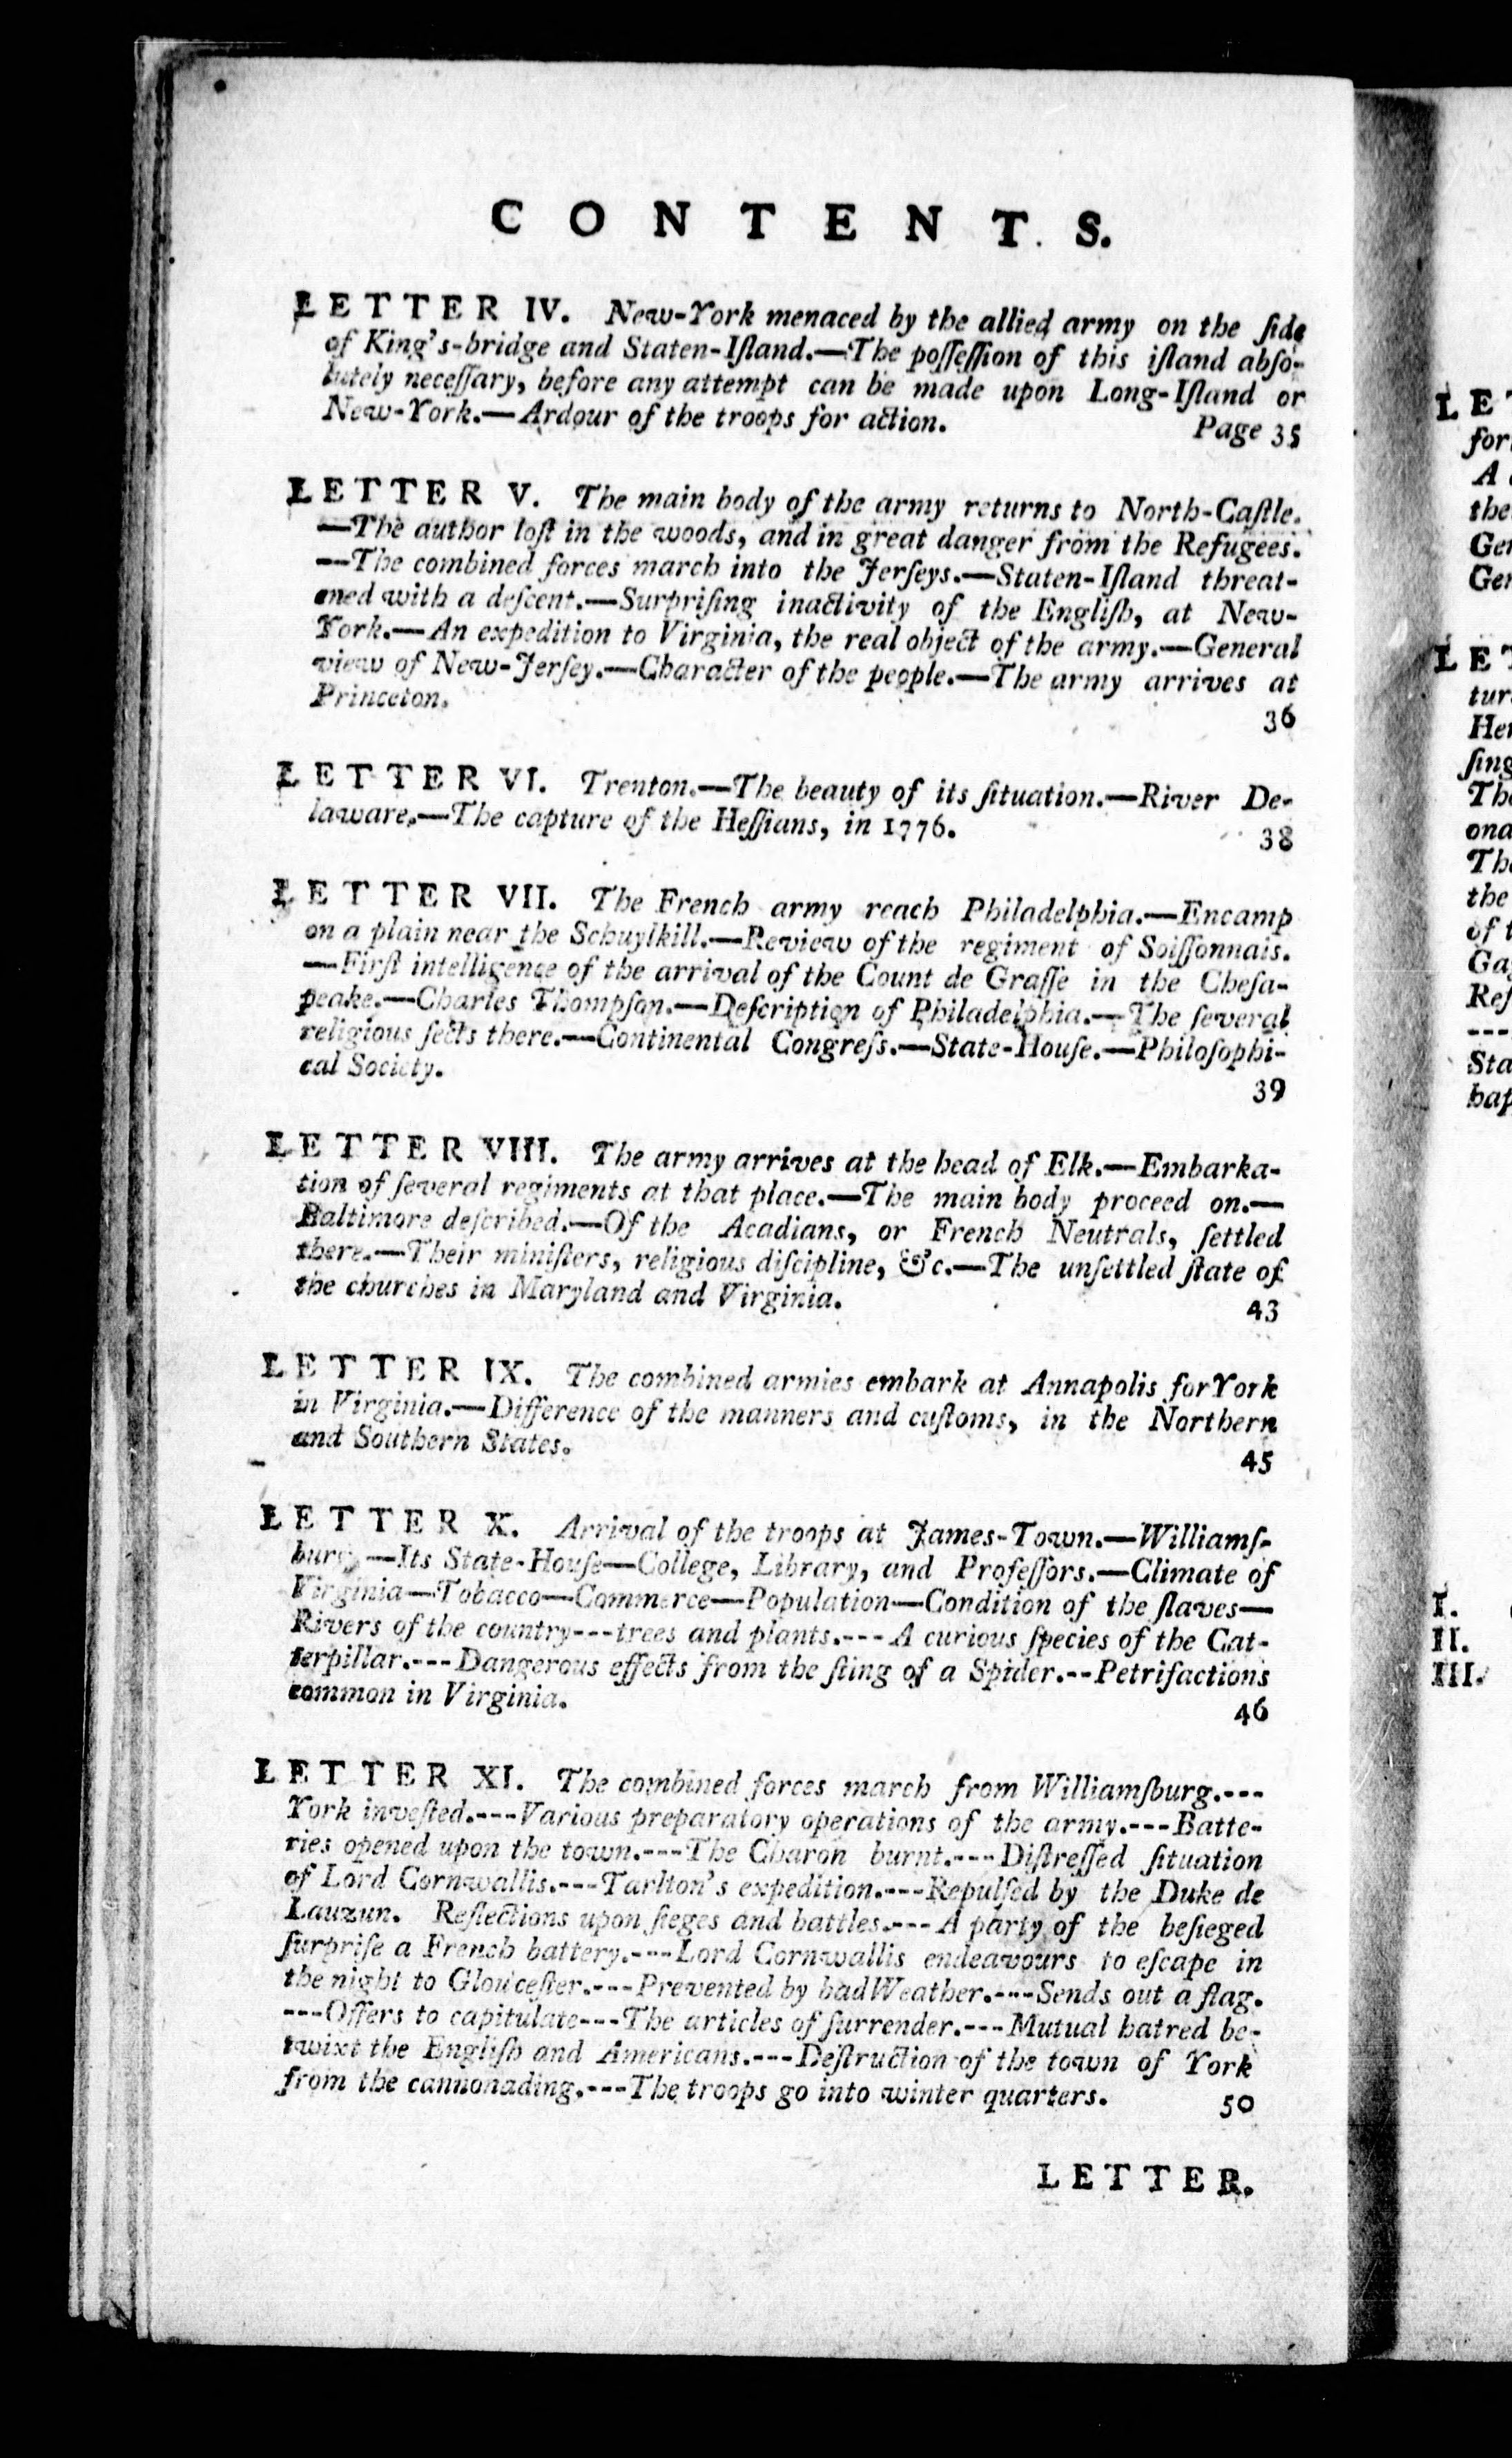 CONTENTS.
LETTER IV. New-York menaced by the allied army on the ſide
of King's-bridge and Staten-Iſland.—The poſſeſſion of this iſland abſo-
lutely neceſſary, before any attempt can be made upon Long-Iſland or
New-York.—Ardour of the troops for action. Page 35
LETTER V. The main body of the army returns to North-Caſtle.
—The author loſt in the woods, and in great danger from the Refugees.
—The combined forces march into the Jerſeys.—Staten-Iſland threat-
ened with a deſcent.—Surpriſing inactivity of the Engliſh, at New-
York.—An expedition to Virginia, the real object of the army.—General
view of New-Jerſey.—Character of the people.—The army arrives at
Princeton. 36
LETTER VI. Trenton.—The beauty of its ſituation.—River De-
laware.—The capture of the Heſſians, in 1776. 38
LETTER VII. The French army reach Philadelphia.—Encamp
on a plain near the Schuylkill.—Review of the regiment of Soiſſonnais.
—Firſt intelligence of the arrival of the Count de Graſſe in the Cheſa-
peake.—Charles Thompſon.—Deſcription of Philadelphia.—The ſeveral
religious ſects there.—Continental Congreſs.—State-Houſe.—Philoſophi-
cal Society. 39
LETTER VIII. The army arrives at the head of Elk.—Embarka-
tion of ſeveral regiments at that place.—The main body proceed on.—
Baltimore deſcribed.—Of the Acadians, or French Neutrals, ſettled
there.—Their miniſters, religious diſcipline, &c.—The unſettled ſtate of
the churches in Maryland and Virginia. 43
LETTER IX. The combined armies embark at Annapolis for York
in Virginia.—Difference of the manners and cuſtoms, in the Northern
and Southern States. 45
LETTER X. Arrival of the troops at James-Town.—Williamſ-
burg.—Its State-Houſe—College, Library, and Profeſſors.—Climate of
Virginia—Tobacco—Commerce—Population—Condition of the ſlaves—
Rivers of the country---trees and plants.---A curious ſpecies of the Cat-
terpillar.---Dangerous effects from the ſting of a Spider.--Petrifactions
common in Virginia. 46
LETTER XI. The combined forces march from Williamſburg.---
York inveſted.---Various preparatory operations of the army.---Batte-
ries opened upon the town.---The Charon burnt.---Diſtreſſed ſituation
of Lord Cornwallis.---Tarlton's expedition.---Repulſed by the Duke de
Lauzun. Reflections upon ſieges and battles.---A party of the beſieged
ſurpriſe a French battery.---Lord Cornwallis endeavours to eſcape in
the night to Glouceſter.---Prevented by bad Weather.---Sends out a flag.
---Offers to capitulate---The articles of ſurrender.---Mutual hatred be-
twixt the Engliſh and Americans.---Deſtruction of the town of York
from the cannonading.---The troops go into winter quarters. 50
LETTER.